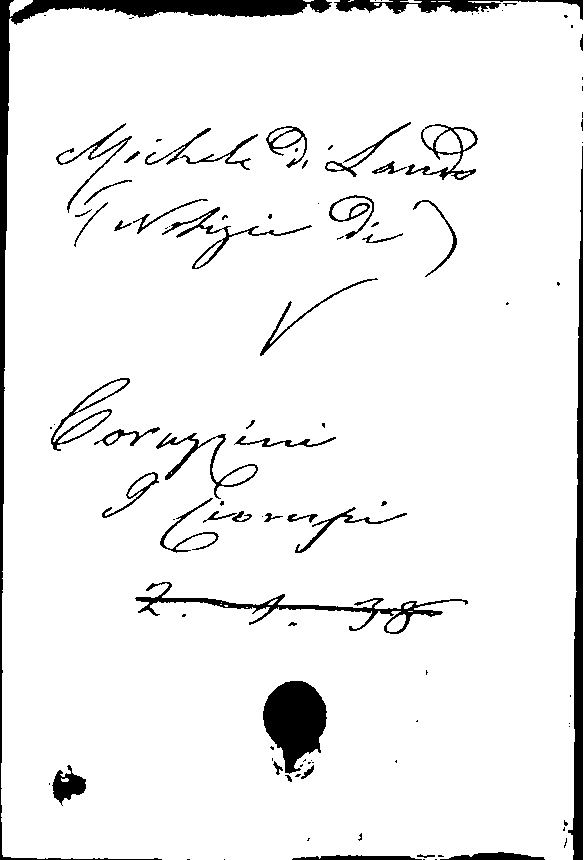 Michele di Lando
(Notizie di)
V
Corazzini
I Ciompi
2. 1. 38